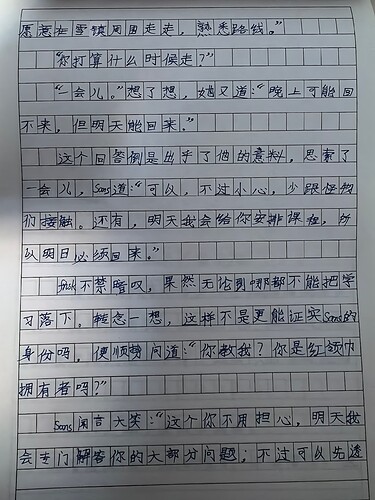 愿意在雪镇周围走走，熟悉路线。”
“你打算什么时候走？”
“一会儿。”想了想，她又道：“晚上可能回
不来，但明天能回来。”
这个回答倒是出乎了他的意料，思索了
一会儿，Sans道：“可以，不过小心，少跟怪物
们接触。还有，明天我会给你安排课程，所
以明日必须回来。”
frisk不禁暗叹，果然无论到哪都不能把学
习落下。转念一想，这样不是更能证实Sans的
身份吗，便顺势问道：“你教我？你是红领巾
拥有者吗？”
Sans闻言大笑：“这个你不用担心，明天我
会专门解答你的大部分问题；不过可以先透